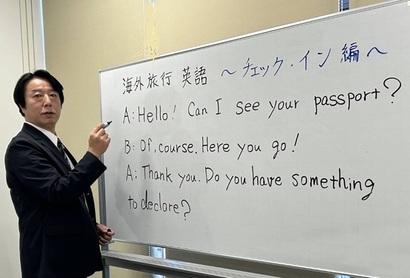 海外旅行 英語 〜チェック・イン編〜
A: Hello! Can I see your passport?
B: Of. course. Here you go!
A: Thank you. Do you have something
to declare?